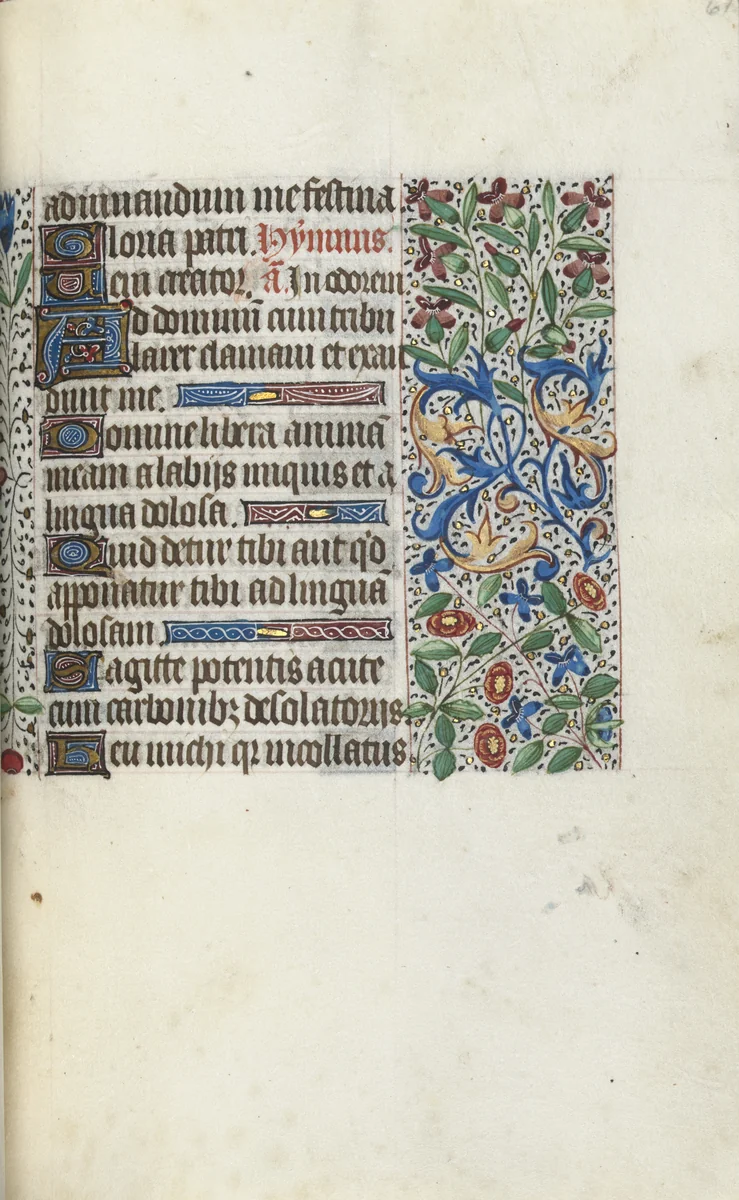 61
adiuuandum me festina
Gloria patri. Hymnus.
Ueni creator. a͞. In odorem
Ad dominu͞ cum tribu
larer clamaui et exau
diuit me.
Domine libera anima͞
meam a labijs iniquis et a
lingua dolosa.
Quid detur tibi aut q'd
apponatur tibi ad lingua͞
dolosam.
Sagitte potentis acute
cum carbonibꝫ desolatorijs
Heu michi qꝛ incollatus